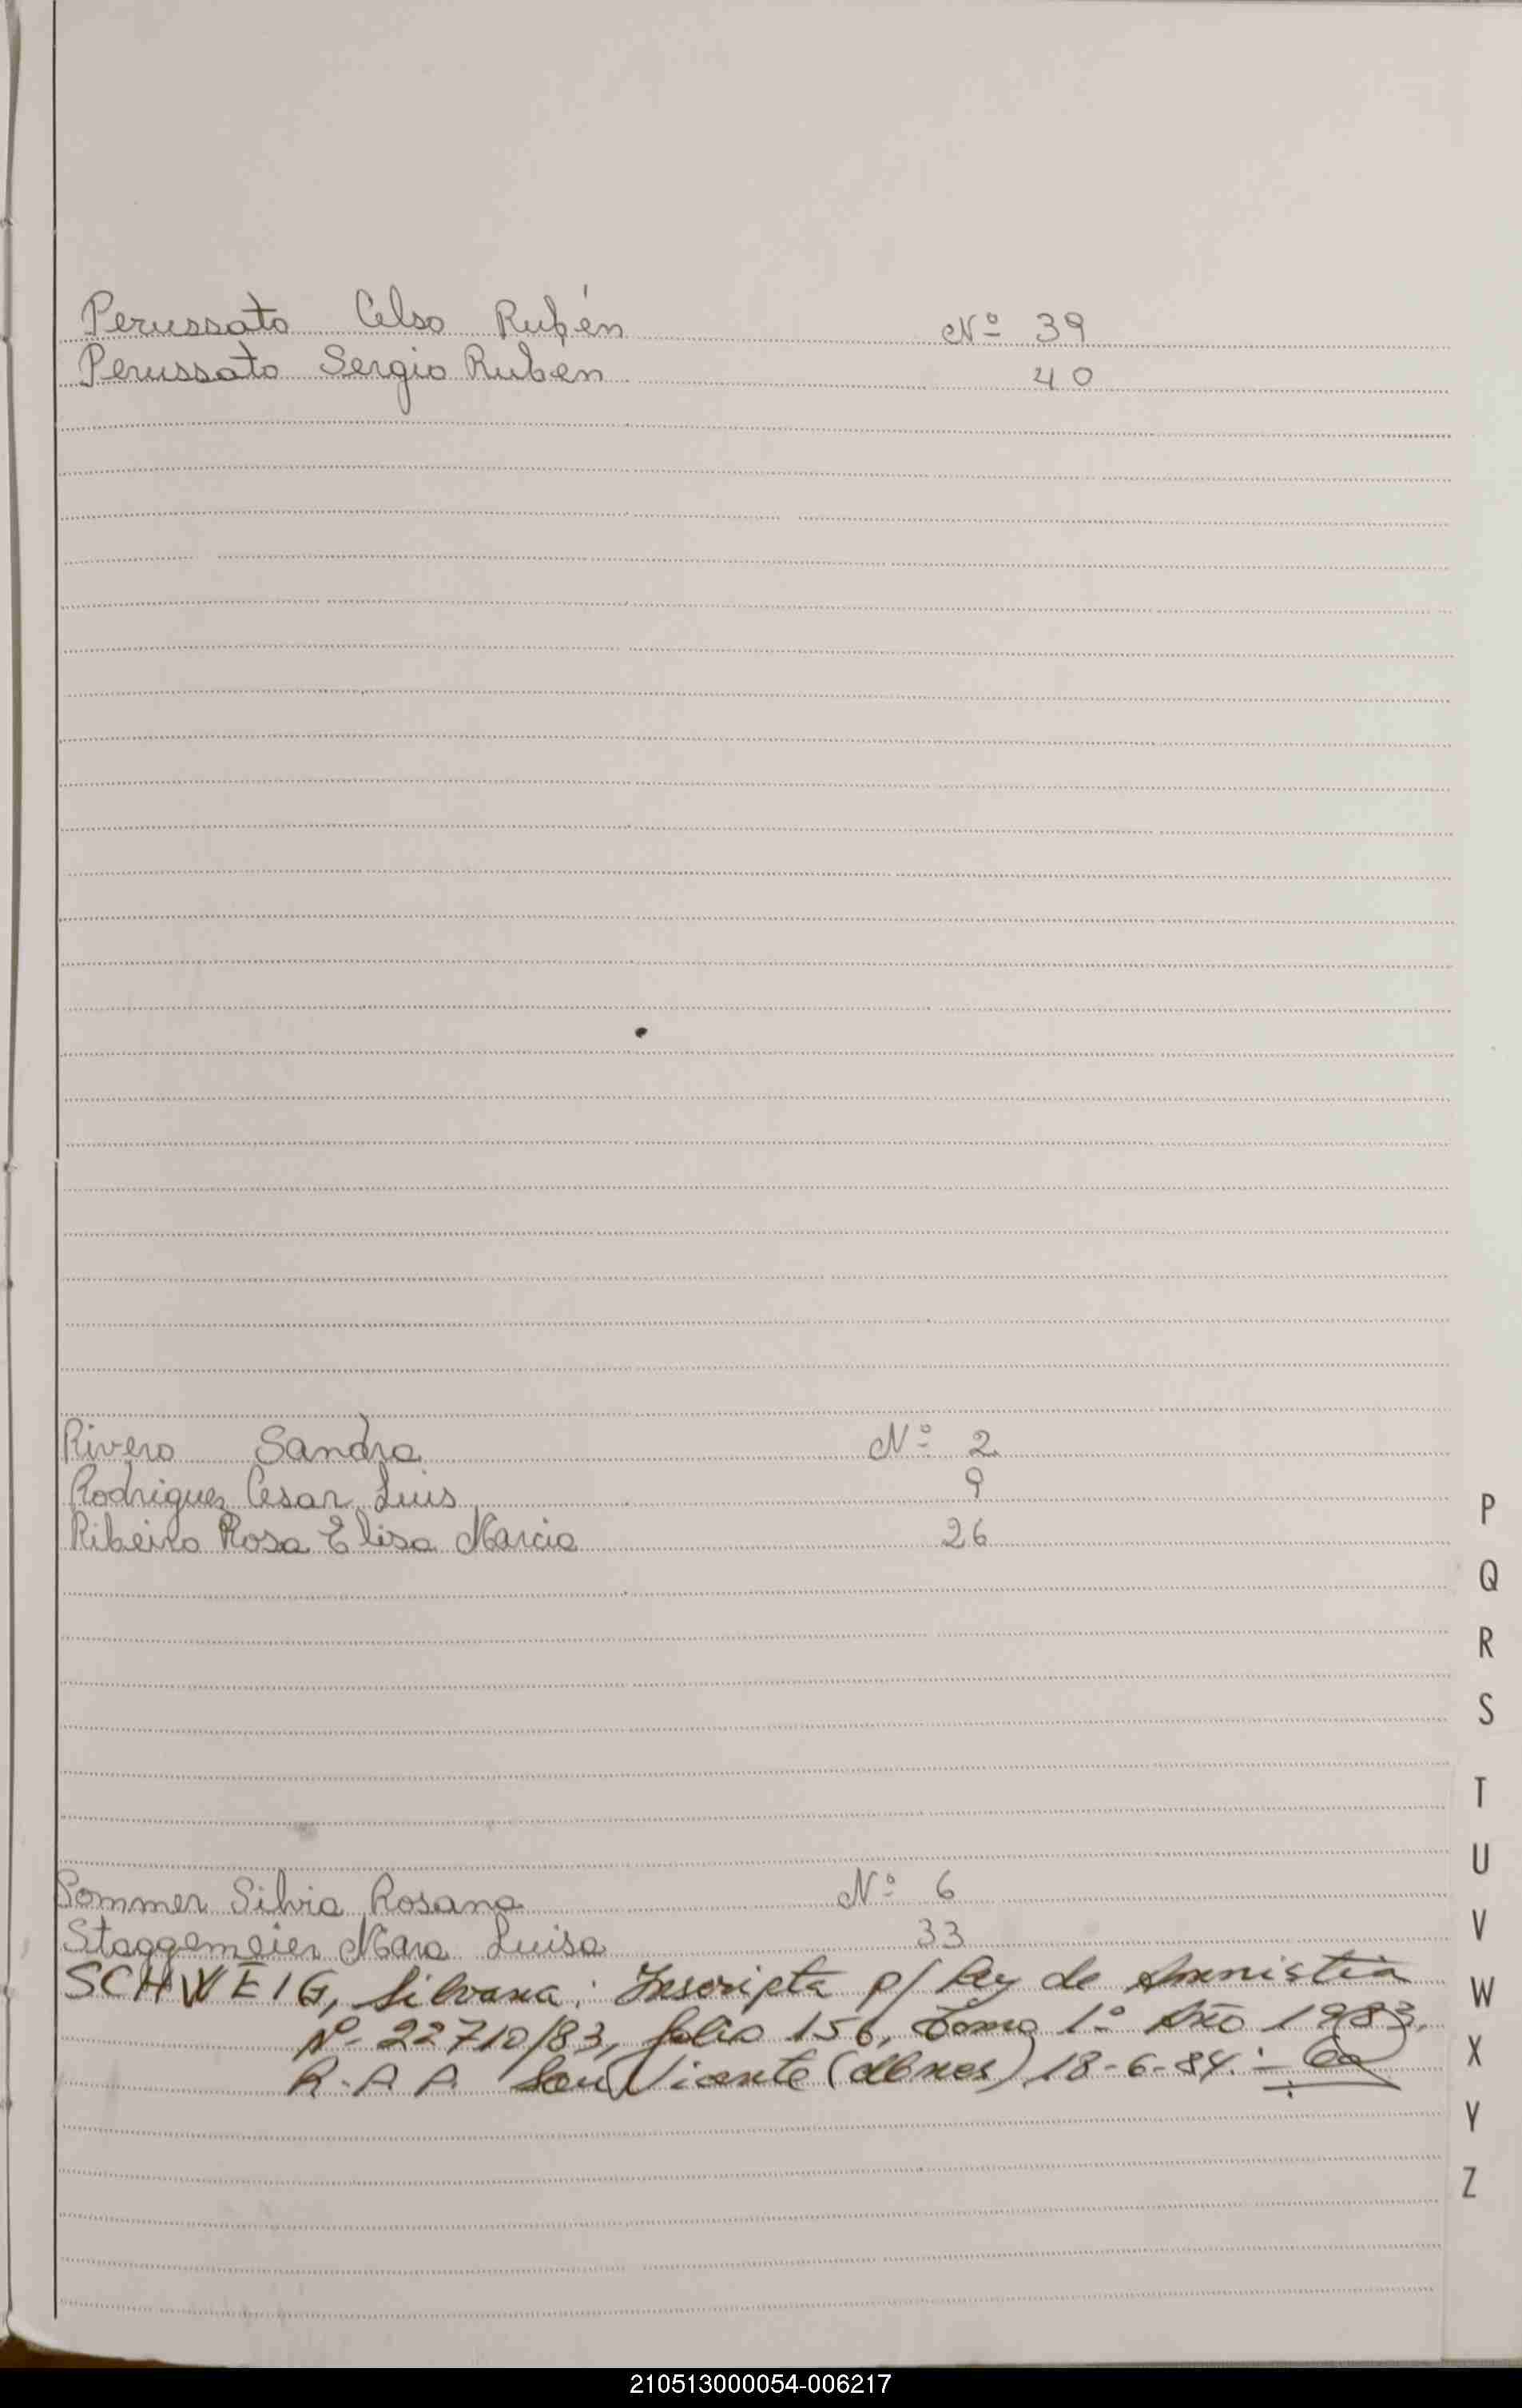 Perussato Celso Rubén Nº 39
Perussato Sergio Rubén 40
Rivero Sandra Nº 2
Rodriguez Cesar Luis 9
Ribeiro Rosa Elisa Marcia 26
P
Q
R
S
T
U
V
W
X
Y
Z
Sommer Silvia Rosana Nº 6
Staggemeier Mara Luisa 33
SCHWEIG, Silvana: Inscripta p/ Ley de Amnistia
Nº 22710/83, folio 156, Tomo 1º Año 1983,
San Vicente (Mnes) 18-6-84.-
210513000054-006217